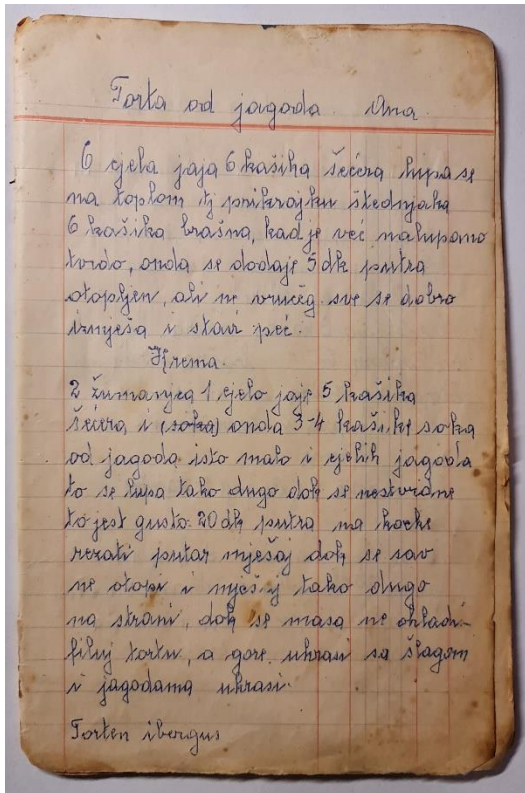 Torta od jagoda. Ana.
6 cjela jaja 6 kašika šećera lupa se
na toplom tj prikrajku štednjaka
6 kašika brašna, kad je već nalupano
tvrdo, onda se dodaje 5 dk putra
otopljen, ali ne vrućeg. sve se dobro
izmješa i stavi peć.
Krema.
2 žumanjca 1 cjelo jaje 5 kašika
šećera i (soka) onda 3-4 kašike soka
od jagoda isto malo i cjelih jagoda
to se lupa tako dugo dok se nestvrdne
to jest gusto: 20 dk putra na kocke
rezati putar mješaj dok se sav
ne otopi i mješaj tako dugo
na strani, dok se masa ne ohladi-
filuj tortu, a gore ukrasi sa šlagom
i jagodama ukrasi.
Torten ibergus